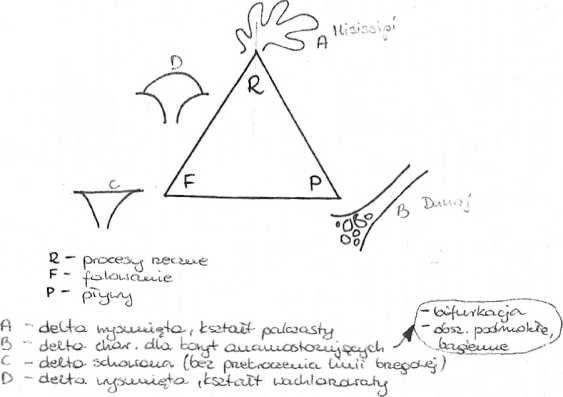 A Missisipi
D
R
C
F P
B Dunaj
R - procesy rzeczne
F - falowanie
P - pływy
A - delta wysunięta, kształt palczasty
B - delta char. dla koryt anamostozujących
- bifurkacja
- obsz. podmokłe,
bagienne
C - delta schowana (bez przekroczenia linii brzegowej)
D - delta wysunięta, kształt wachlarzowaty